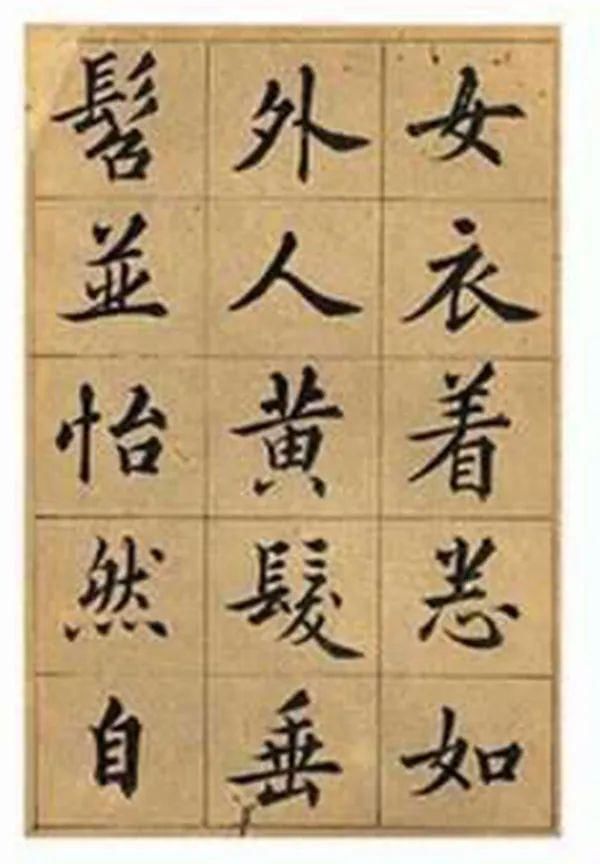 女衣着悉如
外人黄髮垂
髫並怡然自